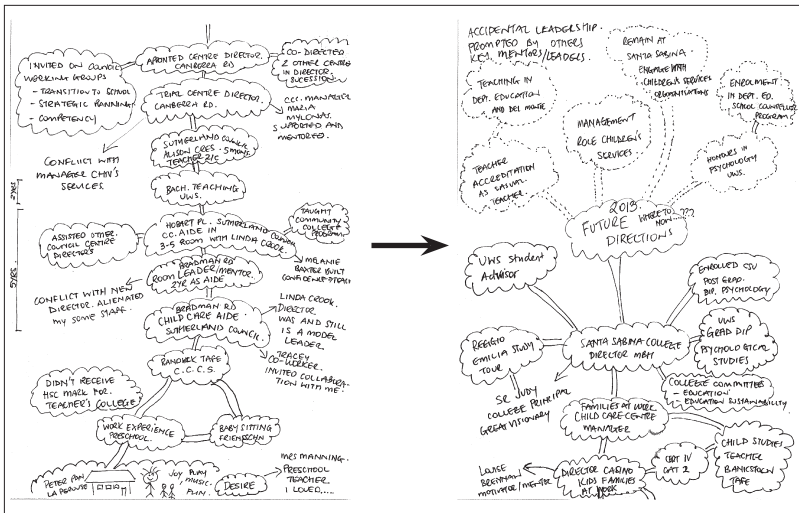 INVITED ON COUNCIL
WORKING GROUPS
- TRANSITION TO SCHOOL
- STRATEGIC PLANNING
- COMPETENCY
APPONTED CENTRE DIRECTOR.
CANBERRA RD
CO-DIRECTED
2 OTHER CENTRE
IN DIRECTOR
SUCESSION
TRIAL CENTRE DIRECTOR.
CANBERRA RD.
CCC. MANAGER
MARIA
MYLONAS.
SUPPORTED AND
MENTORED.
SUTHERLAND COUNCIL
ALISON CRES. 5 MONTHS
TEACHER 2IC
CONFLICT WITH
MANAGER CHN'S
SERVICES.
2 YRS
BACH. TEACHING
UWS.
5 YRS
ASSISTED OTHER
COUNCIL CENTRE
DIRECTORS
HOBART PL. SUTHERLAND COUNCIL
CC. AIDE IN
3-5 ROOM WITH LINDA CROOK.
TAUGHT
COMMUNITY
COLLEGE
PROGRAM
BRADMAN RD
ROOM LEADER/MENTOR.
2YR AS AIDE
MELANIE
BAXTER BUILT
CONFIDENCE
CONFLICT WITH NEW
DIRECTOR. ALIENATED
MY SOME STAFF.
BRADMAN RD
CHILD CARE AIDE
SUTHERLAND COUNCIL.
LINDA CROOK.
DIRECTOR
WAS AND STILL
IS A MODEL
LEADER
TRACEY
CO-WORKER.
INVITED COLLABORA-
TION WITH ME.
RANDWICK TAFE
C.C.C.S.
DIDN'T RECEIVE
HSC MARK FOR
TEACHER'S COLLEGE
WORK EXPERIENCE
PRESCHOOL.
BABY SITTING
PETER PAN
LA PEROUSE
JOY PLAY,
MUSIC.
FUN.
DESIRE
MRS MANNING.
PRESCHOOL
TEACHER
I LOVED....
ACCIDENTAL LEADERSHIP.
PROMPTED BY OTHERS
KEY MENTORS/LEADERS.
REMAIN AT
SANTA SABINA
ENGAGE WITH
CHILDREN'S SERVICES
ORGANISATIONS
TEACHING IN
DEPT. EDUCATION
AND DEL MONTE
ENROLMENT
IN DEPT. ED.
SCHOOL COUNSELLOR
PROGRAM
MANAGEMENT
ROLE CHILDREN'S
SERVICES.
TEACHER
ACCREDITATION
AS CASUAL
TEACHER.
HONOURS IN
PSYCHOLOGY
UWS.
2013.
FUTURE WHERE TO NOW ???
DIRECTIONS
UWS Student
Advisor
ENROLLED CSU
POST GRAD.
DIP. PSYCHOLOGY
REGGIO
EMILIA STUDY
TOUR
SANTA SABINA COLLEGE
DIRECTOR MBM
UWS
GRAD DIP
PSYCHOLOGICAL
STUDIES
SR JUDY
COLLEGE PRINCIPAL
GREAT VISIONARY
COLLEGE COMMITTEES
- EDUCATION
- EDUCATION SUSTAINABILITY
FAMILIES AT WORK
CHILD CARE CENTRE
MANAGER
LOUISE
BRENNAN
MOTIVATOR/MENTOR
DIRECTOR CASINO
KIDS FAMILIES
AT WORK
CERT IV
CAT 2
CHILD STUDIES
TEACHER
BANKSTOWN
TAFE